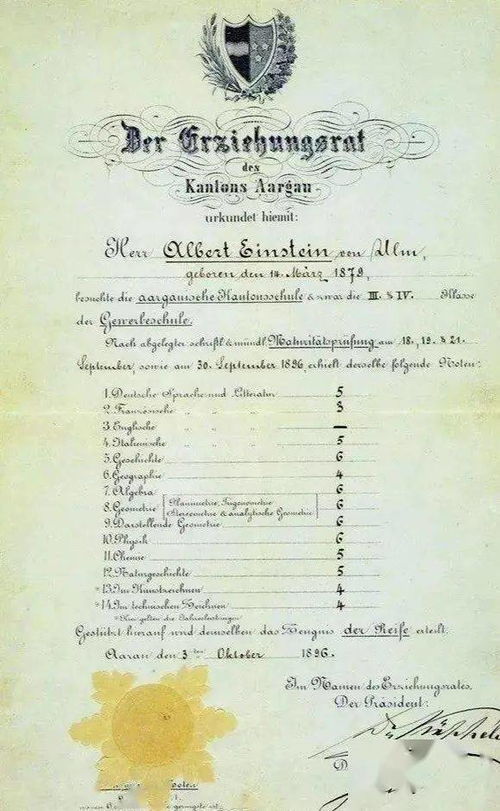 Der Erziehungsrat
des
Kantons Aargau
urkundet hiemit:
Herr Albert Einstein von Ulm,
geboren den 14. März 1879,
besuchte die aargauische Kantonsschule & zwar die III. & IV. Klasse
der Gewerbeschule.
Nach abgelegter schriftl. & mündl. Maturitätsprüfung am 18., 19. & 21.
September, sowie am 30. September 1896, erhielt derselbe folgende Noten:
1. Deutsche Sprache und Litteratur 5
2. Französische " " " 3
3. Englische " " " —
4. Italienische " " " 5
5. Geschichte 6
6. Geographie 4
7. Algebra 6
8. Geometrie Planimetrie, Trigonometrie 6
Stereometrie & analytische Geometrie
9. Darstellende Geometrie 6
10. Physik 6
11. Chemie 5
12. Naturgeschichte 5
*13. Im Kunstzeichnen 4
*14. Im technischen Zeichnen 4
*Hier gelten die Jahresleistungen.
Gestützt hierauf wird demselben das Zeugnis der Reife erteilt.
Aarau den 3ten Oktober 1896.
Im Namen des Erziehungsrates,
Der Präsident: